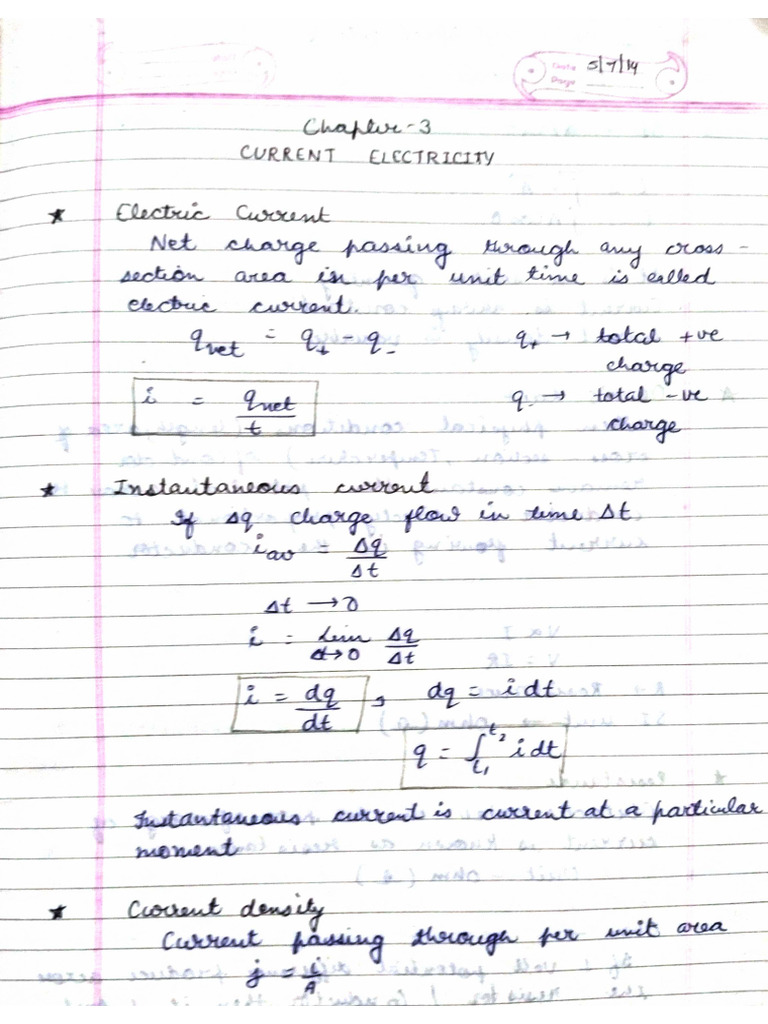 5/7/14
Chapter-3
CURRENT ELECTRICITY
★ Electric Current
Net charge passing through any cross-
section area in per unit time is called
electric current.
q_net = q₊ - q₋    q₊ → total +ve
charge
i = q_net/t    q₋ → total -ve
charge
★ Instantaneous current
If Δq charge flow in time Δt
i_av = Δq/Δt
Δt → 0
i = lim Δt→0 Δq/Δt
i = dq/dt , dq = i dt
q = ∫_t₁^t₂ i dt
Instantaneous current is current at a particular
moment
★ Current density
Current passing through per unit area
j = i/A